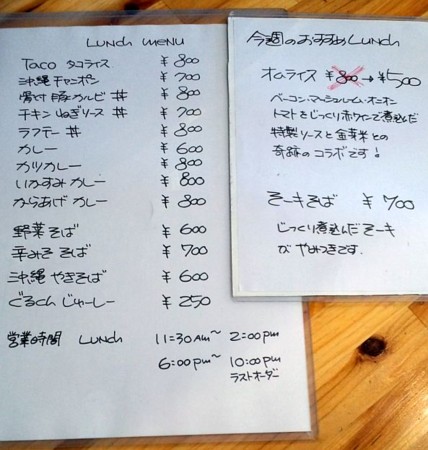 Lunch menu
Taco タコライス ¥800
沖縄チャンポン ¥700
骨付豚カルビ丼 ¥800
チキンねぎソース丼 ¥700
ラフテー丼 ¥800
カレー ¥600
カツカレー ¥800
いかすみカレー ¥800
からあげカレー ¥800
野菜そば ¥600
辛みそそば ¥700
沖縄やきそば ¥600
ぐるくんじゅーしー ¥250
営業時間 Lunch 11:30AM〜2:00pm
6:00pm〜10:00pm
ラストオーダー
今週のおすすめLunch
オムライス ¥800→¥500
ベーコン・マッシュルーム・オニオン
トマトをじっくり赤ワインで煮込んだ
特製ソースと金芽米との
奇跡のコラボです!
ソーキそば ¥700
じっくり煮込んだソーキ
がやめつきです.